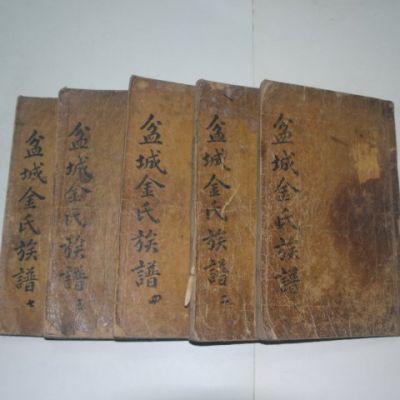 盆城金氏族譜
盆城金氏族譜 二
盆城金氏族譜 四
盆城金氏族譜 五
盆城金氏族譜 七